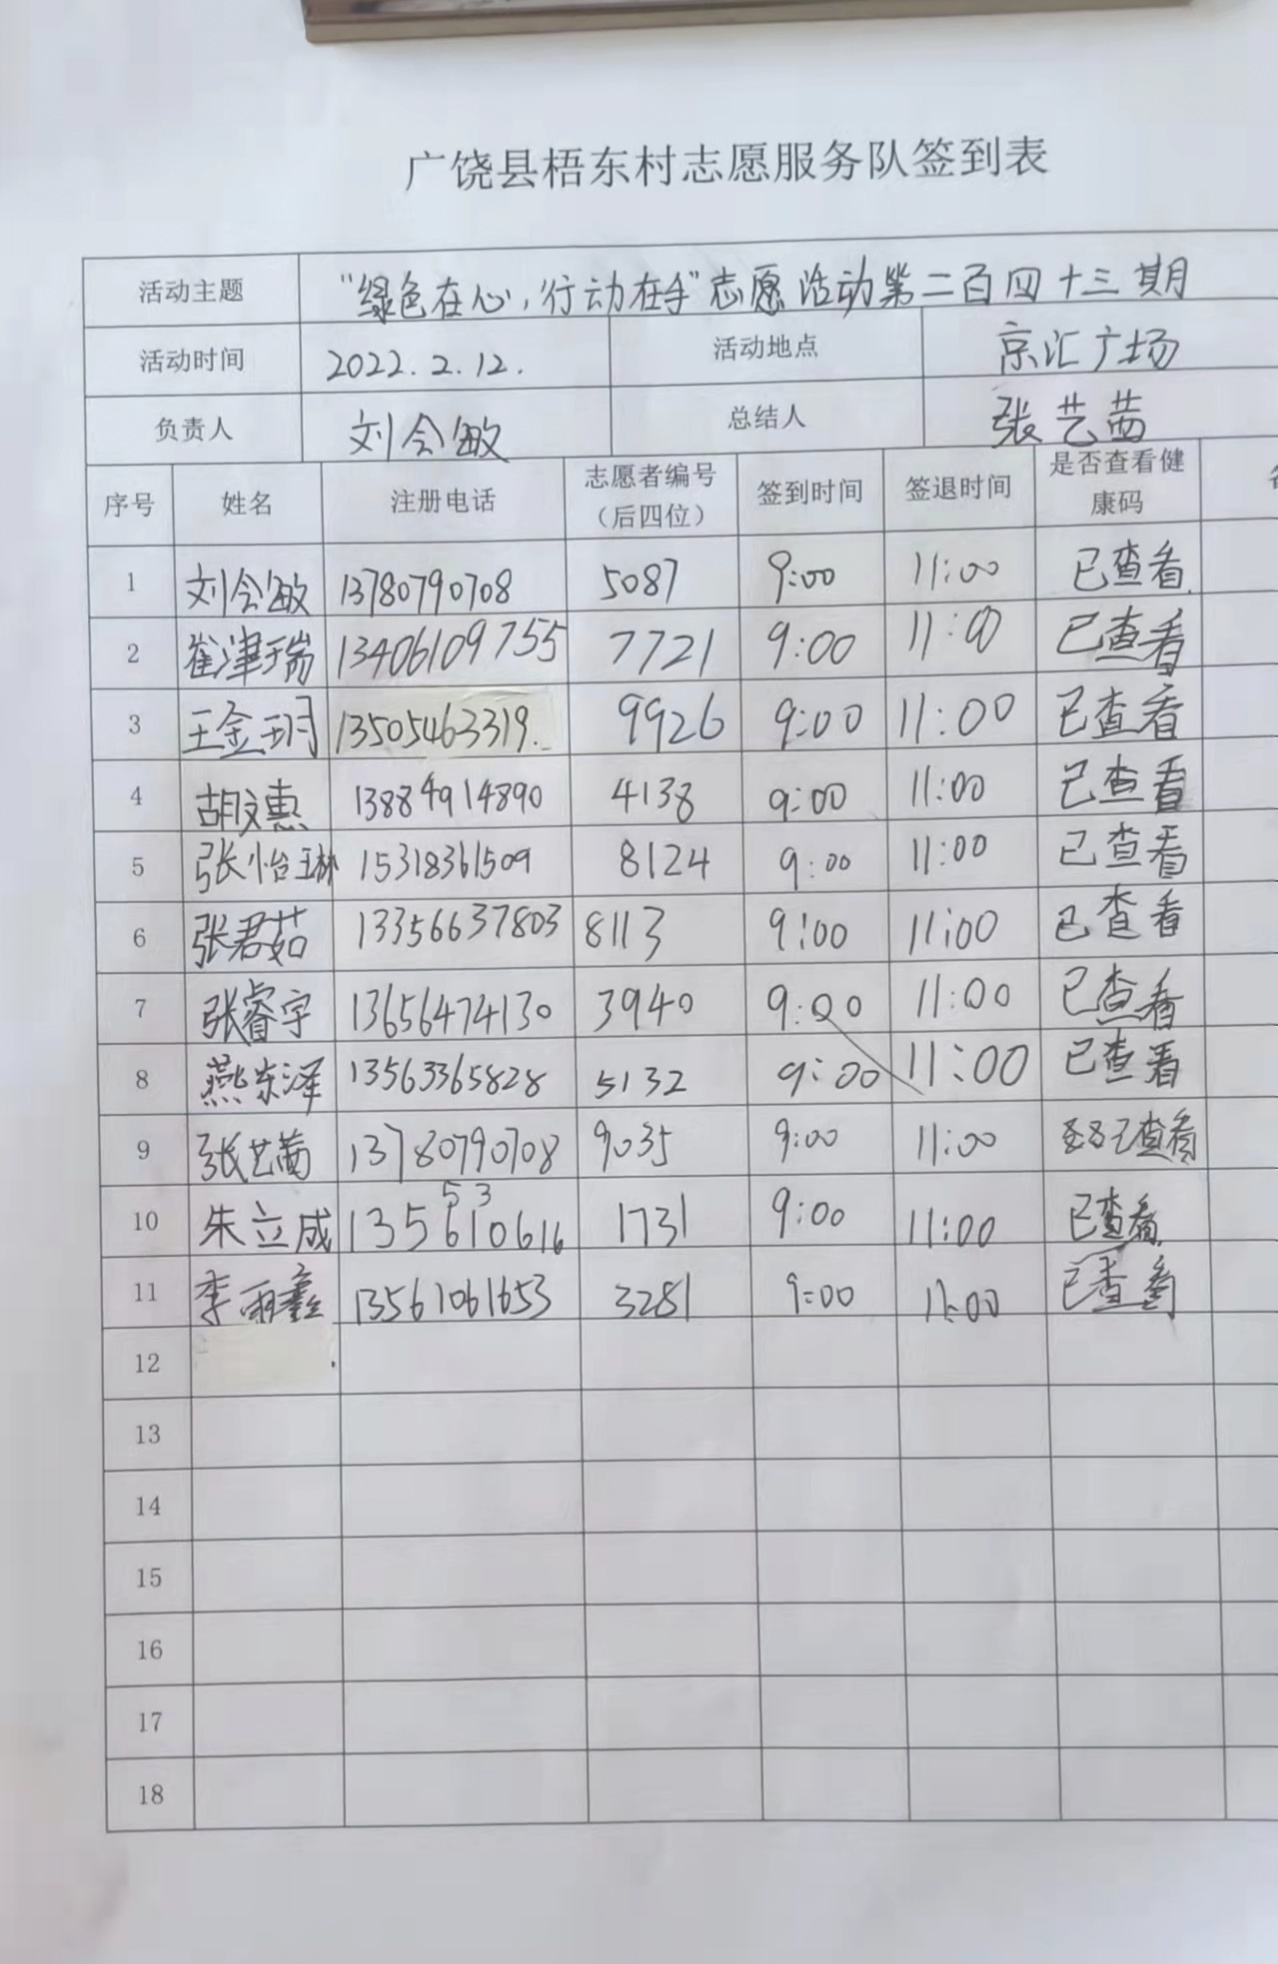 广饶县梧东村志愿服务队签到表
活动主题 "绿色在心,行动在手"志愿活动第二百四十三期
活动时间 2022.2.12. 活动地点 京汇广场
负责人 刘会敏 总结人 张艺茜
序号 姓名 注册电话 志愿者编号（后四位） 签到时间 签退时间 是否查看健康码
1 刘会敏 13780790708 5087 9:00 11:00 已查看
2 崔津瑞 13406109755 7721 9:00 11:00 已查看
3 王金玥 13505463319. 9926 9:00 11:00 已查看
4 胡文惠 13884914890 4138 9:00 11:00 已查看
5 张怡琳 15318361509 8124 9:00 11:00 已查看
6 张君茹 13356637803 8113 9:00 11:00 已查看
7 张睿宇 13656474130 3940 9:00 11:00 已查看
8 燕东泽 13563365828 5132 9:00 11:00 已查看
9 张艺茜 13780790708 9035 9:00 11:00 已查看
53
10 朱立成 135610616 1731 9:00 11:00 已查看
11 李雨鑫 13561061653 3281 9:00 11:00 已查看
12
13
14
15
16
17
18